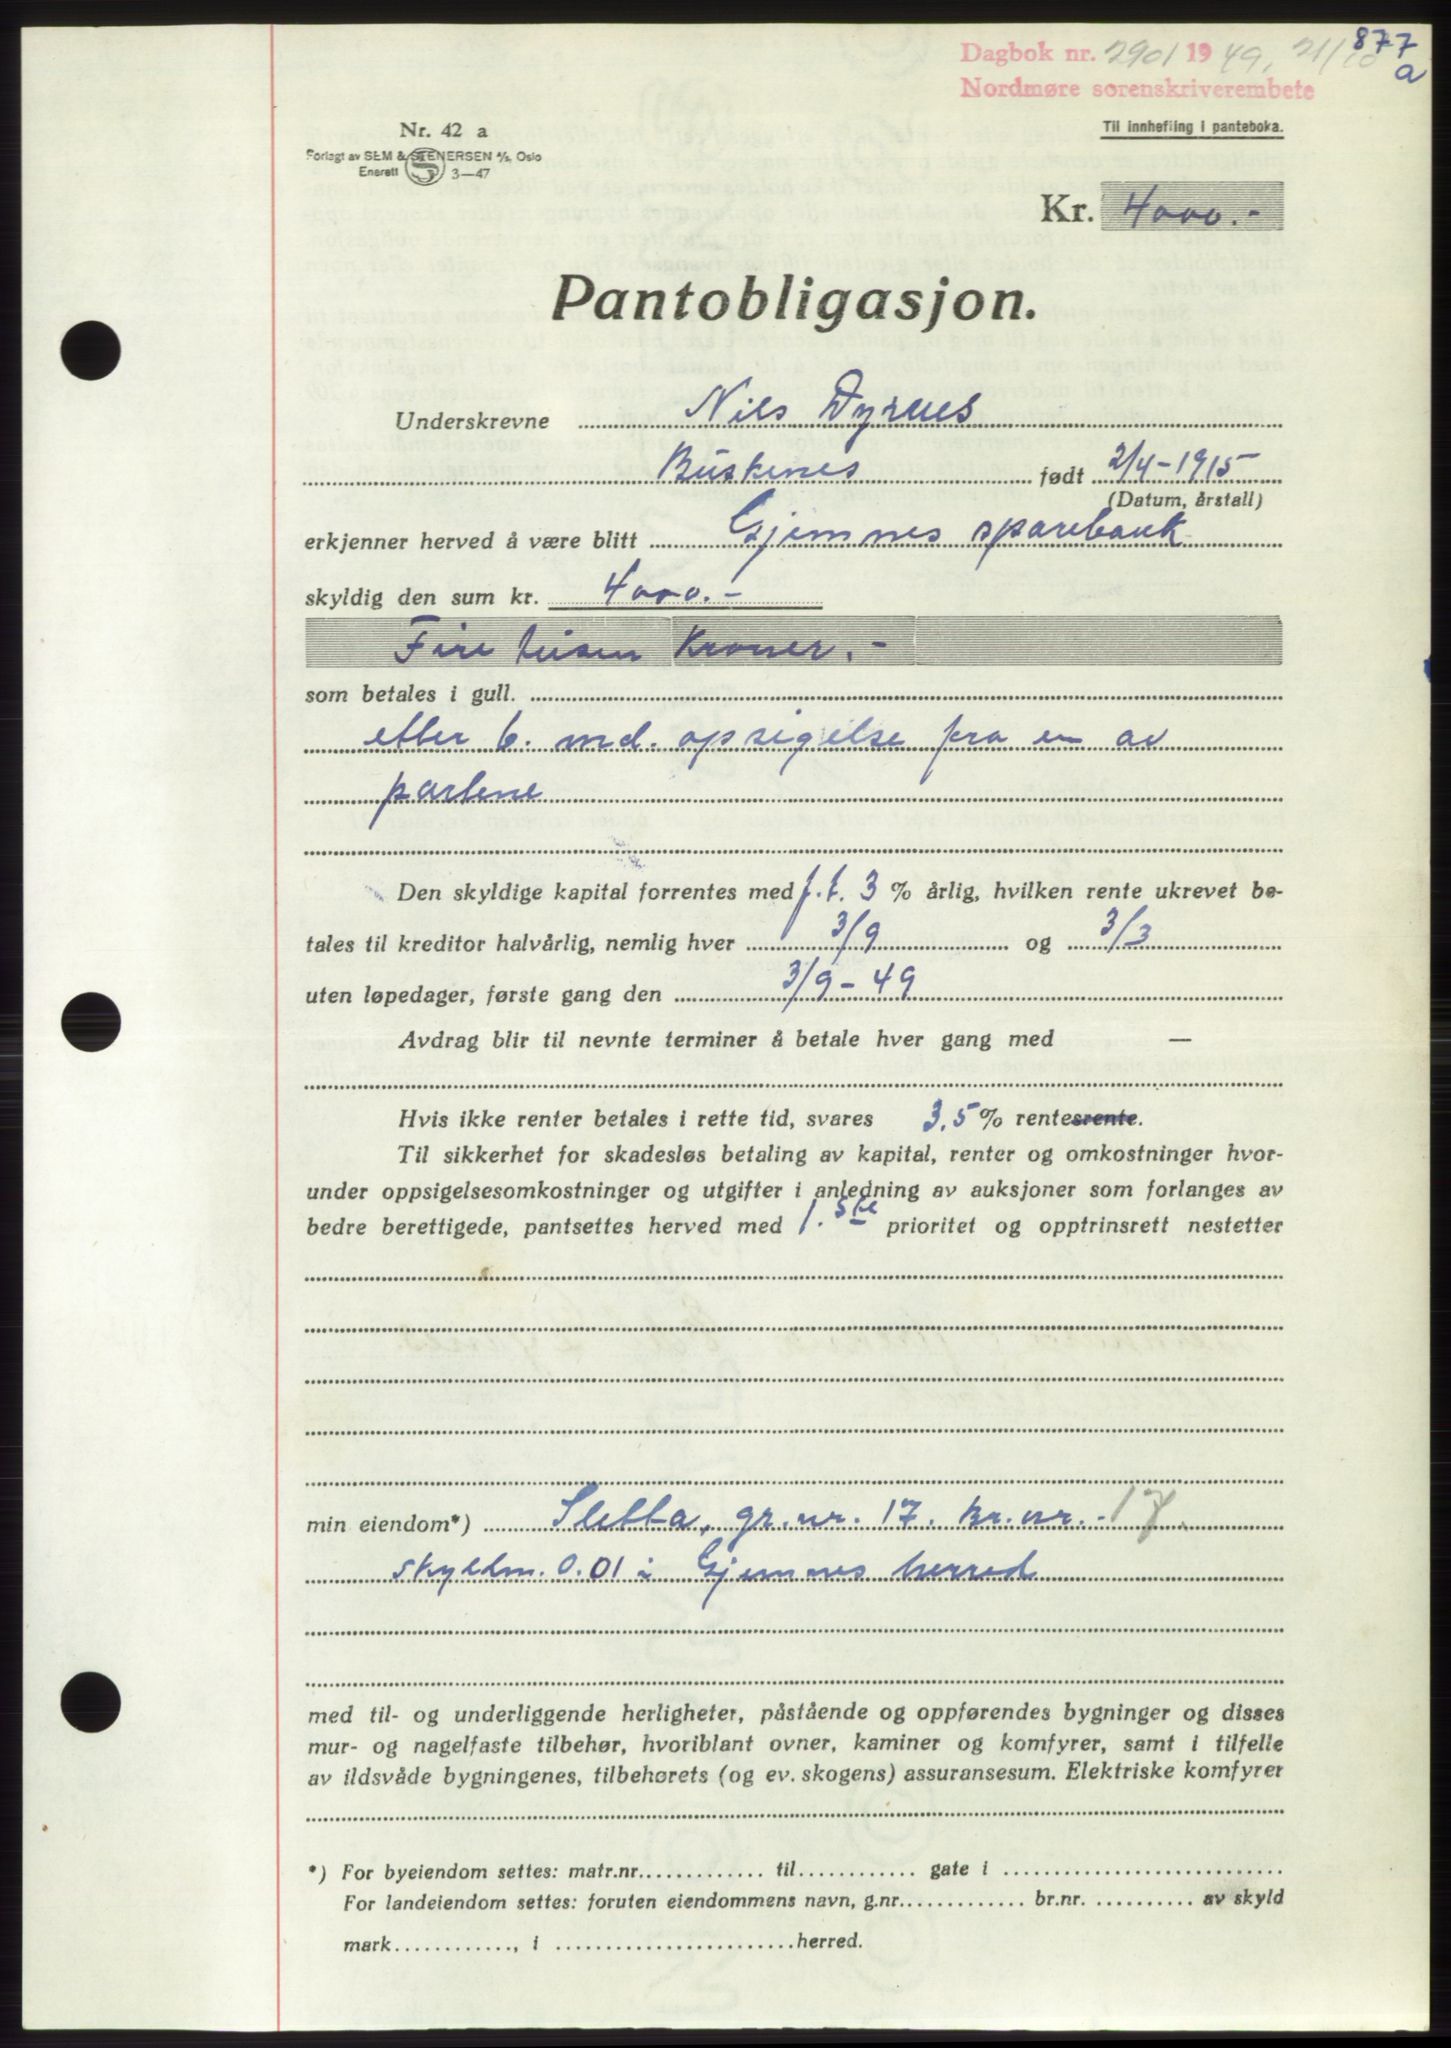 877
a
Dagbok nr. 2901 1949, 21/10
Nordmøre sorenskriverembete
Til innhefting i panteboka.
Nr. 42 a
Forlagt av SEM & STENERSEN A/S, Oslo
Enerett S 3—47
Kr. 4000.-
Pantobligasjon.
Underskrevne Nils Dyrnes
Buskenes født 2/4-1915
(Datum, årstall)
erkjenner herved å være blitt Gjemnes sparebank
skyldig den sum kr. 4000.-
Fire tusen Kroner.-
som betales i gull.
etter 6. md. opsigelse fra en av
partene
Den skyldige kapital forrentes med f.t. 3 % årlig, hvilken rente ukrevet be-
tales til kreditor halvårlig, nemlig hver 3/9 og 3/3
uten løpedager, første gang den 3/9-49
Avdrag blir til nevnte terminer å betale hver gang med —
Hvis ikke renter betales i rette tid, svares 3.5% rentesrente.
Til sikkerhet for skadesløs betaling av kapital, renter og omkostninger hvor-
under oppsigelsesomkostninger og utgifter i anledning av auksjoner som forlanges av
bedre berettigede, pantsettes herved med 1.ste prioritet og opptrinsrett nestetter
min eiendom*) Sletta, gr.nr. 17. br.nr. - 17.
skyldm. 0.01 i Gjemnes herred
med til- og underliggende herligheter, påstående og oppførendes bygninger og disses
mur- og nagelfaste tilbehør, hvoriblant ovner, kaminer og komfyrer, samt i tilfelle
av ildsvåde bygningenes, tilbehørets (og ev. skogens) assuransesum. Elektriske komfyrer
*) For byeiendom settes: matr.nr............. til............ gate i ............................
For landeiendom settes: foruten eiendommens navn, g.nr............. br.nr. ........... av skyld
mark............, i ........................herred.